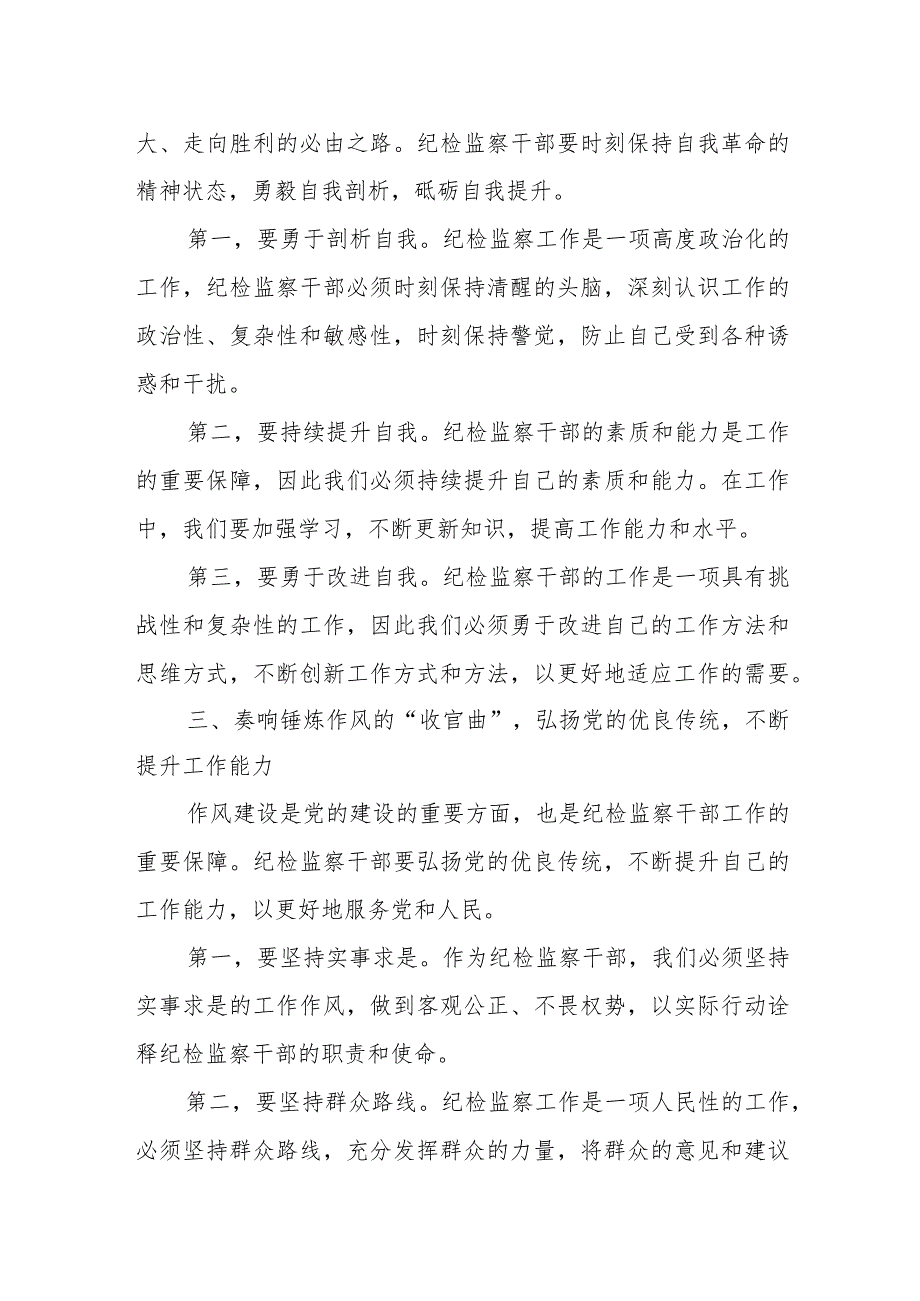 大、走向胜利的必由之路。纪检监察干部要时刻保持自我革命的
精神状态，勇毅自我剖析，砥砺自我提升。
第一，要勇于剖析自我。纪检监察工作是一项高度政治化的
工作，纪检监察干部必须时刻保持清醒的头脑，深刻认识工作的
政治性、复杂性和敏感性，时刻保持警觉，防止自己受到各种诱
惑和干扰。
第二，要持续提升自我。纪检监察干部的素质和能力是工作
的重要保障，因此我们必须持续提升自己的素质和能力。在工作
中，我们要加强学习，不断更新知识，提高工作能力和水平。
第三，要勇于改进自我。纪检监察干部的工作是一项具有挑
战性和复杂性的工作，因此我们必须勇于改进自己的工作方法和
思维方式，不断创新工作方式和方法，以更好地适应工作的需要。
三、奏响锤炼作风的“收官曲”，弘扬党的优良传统，不断
提升工作能力
作风建设是党的建设的重要方面，也是纪检监察干部工作的
重要保障。纪检监察干部要弘扬党的优良传统，不断提升自己的
工作能力，以更好地服务党和人民。
第一，要坚持实事求是。作为纪检监察干部，我们必须坚持
实事求是的工作作风，做到客观公正、不畏权势，以实际行动诠
释纪检监察干部的职责和使命。
第二，要坚持群众路线。纪检监察工作是一项人民性的工作，
必须坚持群众路线，充分发挥群众的力量，将群众的意见和建议